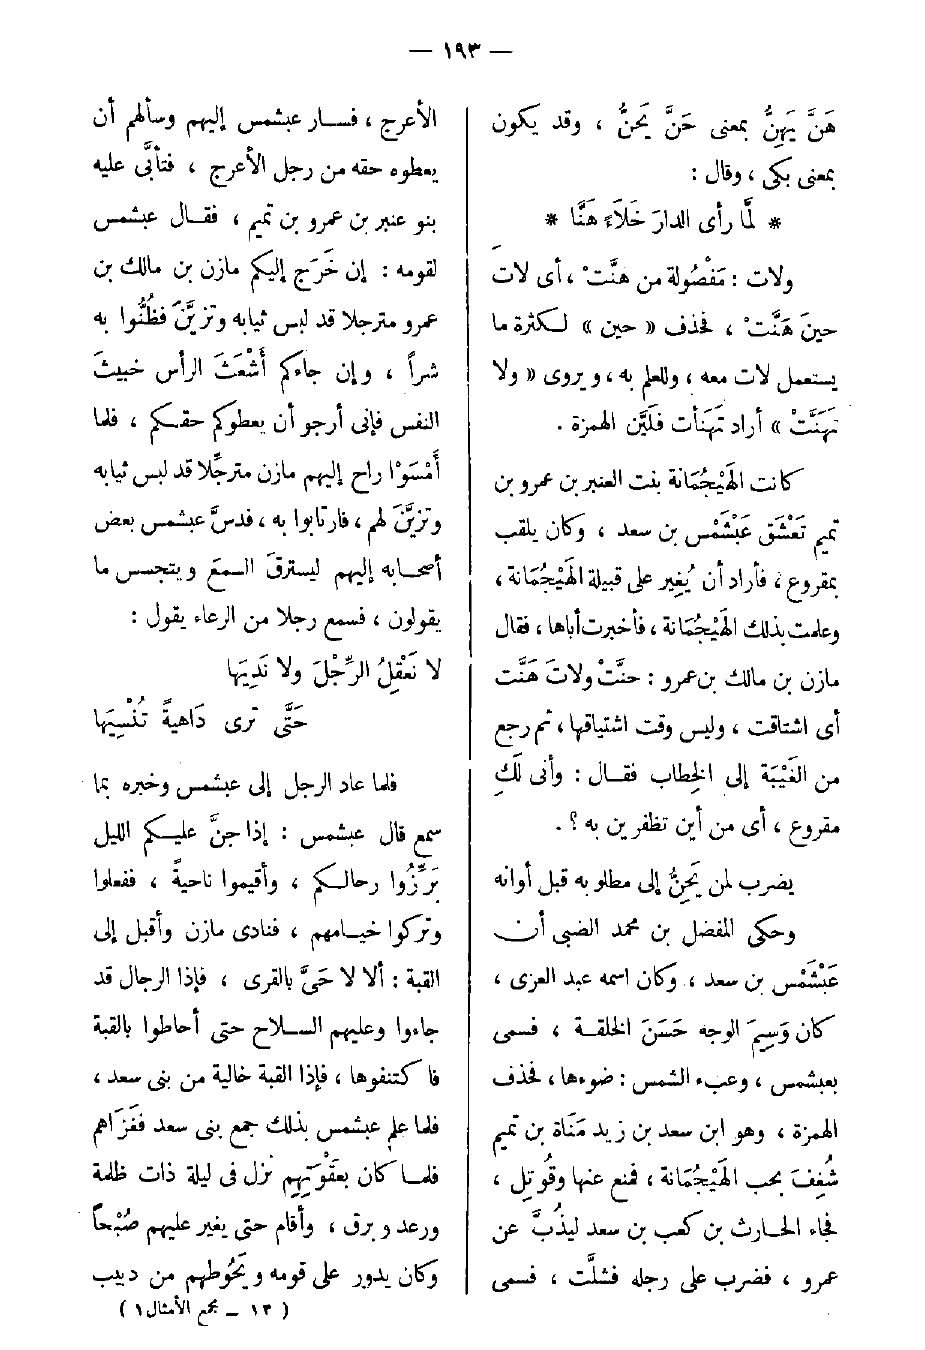 — ١٩٣ —
هَنَّ يَهِنُّ بمعنى حَنَّ يَحِنُّ ، وقد يكون
بمعنى بكى ، وقال :
* لمَّا رأى الدارَ خَلاَءً هَنَّا *
ولات : مَفْصُولة من هنَّتْ ، أى لات
حينَ هَنَّتْ ، فحذف « حين » لكثرة ما
يستعمل لات معه ، وللعلم به ، ويروى « ولا
تَهَنَّتْ » أراد تَهَنَّأت فلَيَّن الهمزة .
كانت الهَيْجُمَانة بنت العنبر بن عمرو بن
تميم تَعْشَق عَبْشَمْس بن سعد ، وكان يلقب
بمقروع ، فأراد أن يُغِير على قبيلة الهَيْجُمَانة ،
وعلمت بذلك الهَيْجُمَانة ، فأخبرت أباها ، فقال
مازن بن مالك بن عمرو : حنَّتْ ولاتَ هَنَّت
أى اشتاقت ، وليس وقت اشتياقها ، ثم رجع
من الغَيْبَة إلى الخطاب فقال : وأنى لَكِ
مقروع ، أى من أين تظفرين به ؟ .
يضرب لمن يَحِنُّ إلى مطلوبه قبل أوانه
وحكى المفضل بن محمد الضبى أن
عَبْشَمْس بن سعد ، وكان اسمه عبد العزى ،
كان وَسِيمَ الوجه حَسَنَ الخلقة ، فسمى
بعبشمس ، وعبء الشمس : ضوءها ، فحذف
الهمزة ، وهو ابن سعد بن زيد مَنَاة بن تميم
شُغِفَ بحب الهَيْجُمَانة ، فمنع عنها وقُوتِل ،
فجاء الحارث بن كعب بن سعد ليذُبَّ عن
عمرو ، فضرب على رجله فشلَّت ، فسمى
الأعرج ، فسار عبشمس إليهم وسألهم أن
يعطوه حقه من رجل الأعرج ، فتأبَّى عليه
بنو عنبر بن عمرو بن تميم ، فقال عبشمس
لقومه : إن خَرَج إليكم مازن بن مالك بن
عمرو مترجلا قد لبس ثيابه وتزيَّنَ فظُنُّوا به
شراً ، وإن جاءكم أَشْعَثَ الرأس خبيثَ
النفس فإنى أرجو أن يعطوكم حقكم ، فلما
أَمْسَوْا راح إليهم مازن مترجِّلا قد لبس ثيابه
وتزيَّنَ لهم ، فارتابوا به ، فدسَّ عبشمس بعض
أصحابه إليهم ليسترقَ السمعَ ويتجسس ما
يقولون ، فسمع رجلا من الرعاء يقول :
لا نَعْقِلُ الرِّجْلَ ولا نَدِيَها
حَتَّى ترى دَاهيةً تُنْسِيَها
فلما عاد الرجل إلى عبشمس وخبره بما
سمع قال عبشمس : إذا جنَّ عليكم الليل
بَرِّزُوا رحالكم ، وأقيموا ناحيةً ، ففعلوا
وتركوا خيامهم ، فنادى مازن وأقبل إلى
القبة : ألا لا حَىَّ بالقرى ، فإذا الرجال قد
جاءوا وعليهم السلاح حتى أحاطوا بالقبة
فاكتنفوها ، فإذا القبة خالية من بنى سعد ،
فلما علم عبشمس بذلك جمع بنى سعد فغَزَاهم
فلما كان بعَقْوَتِهِم نزل فى ليلة ذات ظلمة
ورعد وبرق ، وأقام حتى يغير عليهم صُبْحاً
وكان يدور على قومه ويَحُوطهم من دبيب
( ١٣ — مجمع الأمثال ١ )